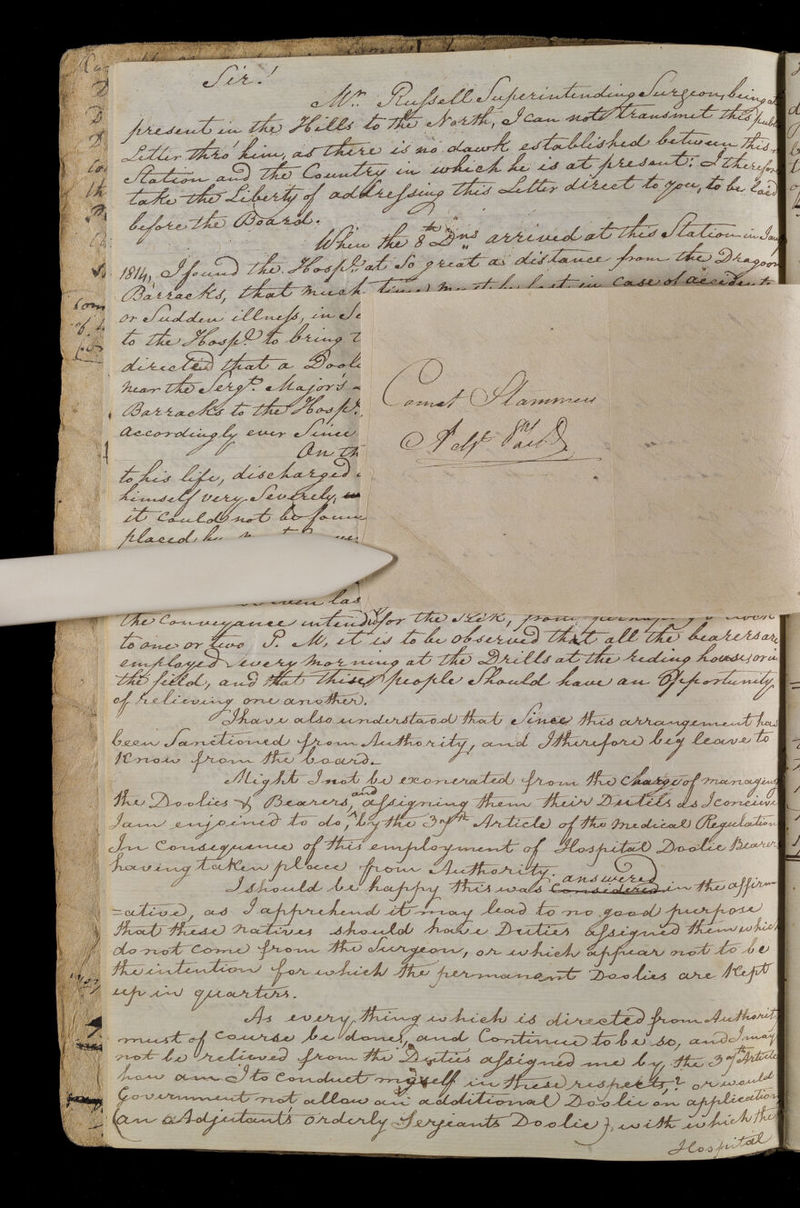 Sir!
Mr. Russell Superintending Surgeon, being at
present in the Hills to the North, I can not transmit this publ
Letter thro' him, as there is no dawk established between this
Station and the Country in which he is at present: I therefore
take the Liberty of addressing this Letter direct to you, to be laid
before the Board.
When the 8th Dns arrived at this Station in Jany
1814, I found the Hospl. at So great a distance from the Dragoon
Barracks, that much time must be lost in case of accidents
or Sudden illness, in Se
to the Hospl. to bring t
directed that a Dooli
near the Sergt. Major's
Barracks to the Hospl.
accordingly ever Since
On th
to his life, discharged
himself very Severely,
it could not be foun
placed by
Cornet Stammers
8th
las
the Conveyance intended for the Sick, from perhaps
to one or two P. M, it is to be observed that all the bearers are
employed every morning at the Drills at the reding houses, or in
the field, and that these people Should have an Opportunity
of relieving one another.
I have also understood that Since this arrangement has
been Sanctioned from Authority, and I therefore beg leave to
Know from the board.
Might I not be exonerated from the charge of managing
the Doolies & Bearers, and assigning them their Duties as I conceive
I am enjoined to do, by the 37th Article of the Medical Regulation
In Consequence of this employment of Hospital Doolie Bearers
having taken place from Authority.
I should be happy this was Considered answered in the affirm
=ative, as I apprehend it may lead to no good purpose
that these natives should have Duties assigned them which
do not Come from the Surgeon, or which appear not to be
the intention for which the permanent Doolies are Kept
up in quarters.
As every thing which is directed from Authority
must of Course be done, and Continue to be so, and I may
not be relieved from the Duties assigned me by the 37th Article
how am I to conduct myself in these respects? or would
Government not allow an additional Doolie on application
(an Adjutant's orderly Serjeants Doolie), with which the
Hospital